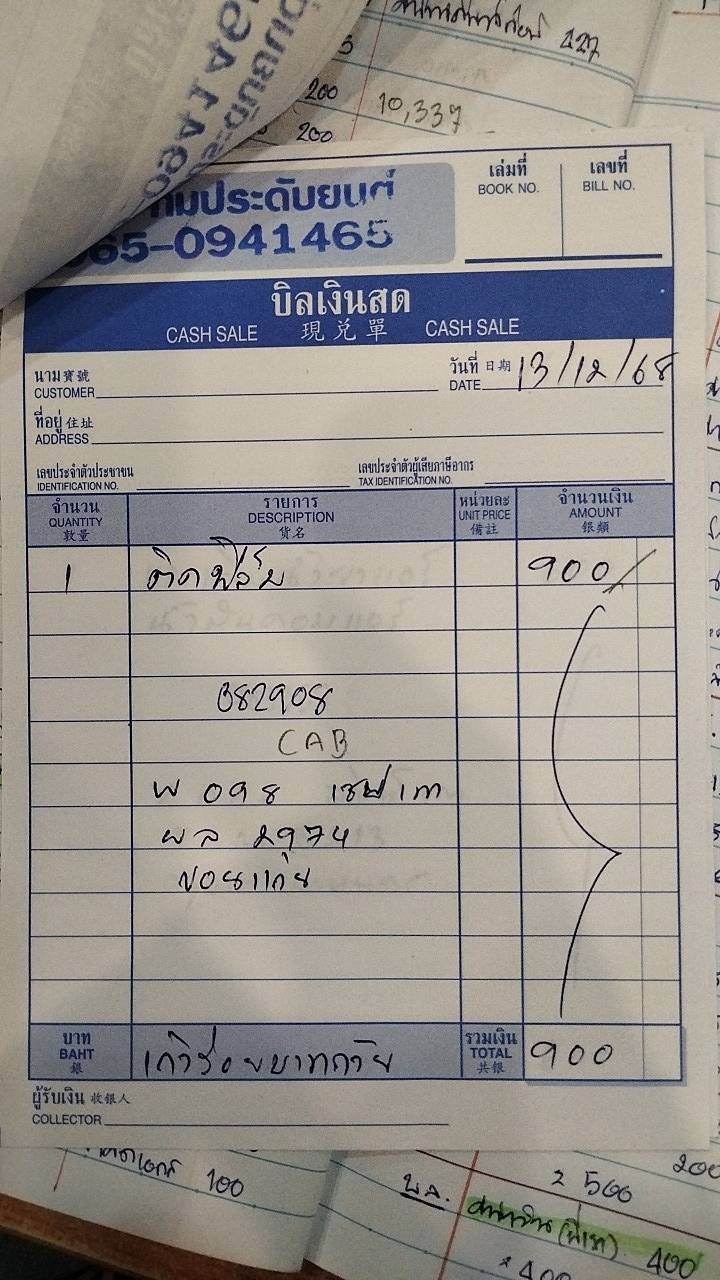 427
200
10,337
200
ประดับยนต์
65-0941465
เล่มที่ เลขที่
BOOK NO. BILL NO.
บิลเงินสด
CASH SALE 現兌單 CASH SALE
นาม寶號 วันที่ 日期 13/12/68
CUSTOMER DATE
ที่อยู่ 住址
ADDRESS
เลขประจำตัวประชาชน เลขประจำตัวผู้เสียภาษีอากร
IDENTIFICATION NO. TAX IDENTIFICATION NO.
จำนวน รายการ หน่วยละ จำนวนเงิน
QUANTITY DESCRIPTION UNIT PRICE AMOUNT
數量 貨名 備註 銀額
1 ติดฟิล์ม 900/
B82908
CAB
พ 098
ผล 2974
ขอนแก่น
บาท รวมเงิน
BAHT เก้าร้อยบาทถ้วน TOTAL 900
銀 共銀
ผู้รับเงิน 收銀人
COLLECTOR
100
2 500
200
400